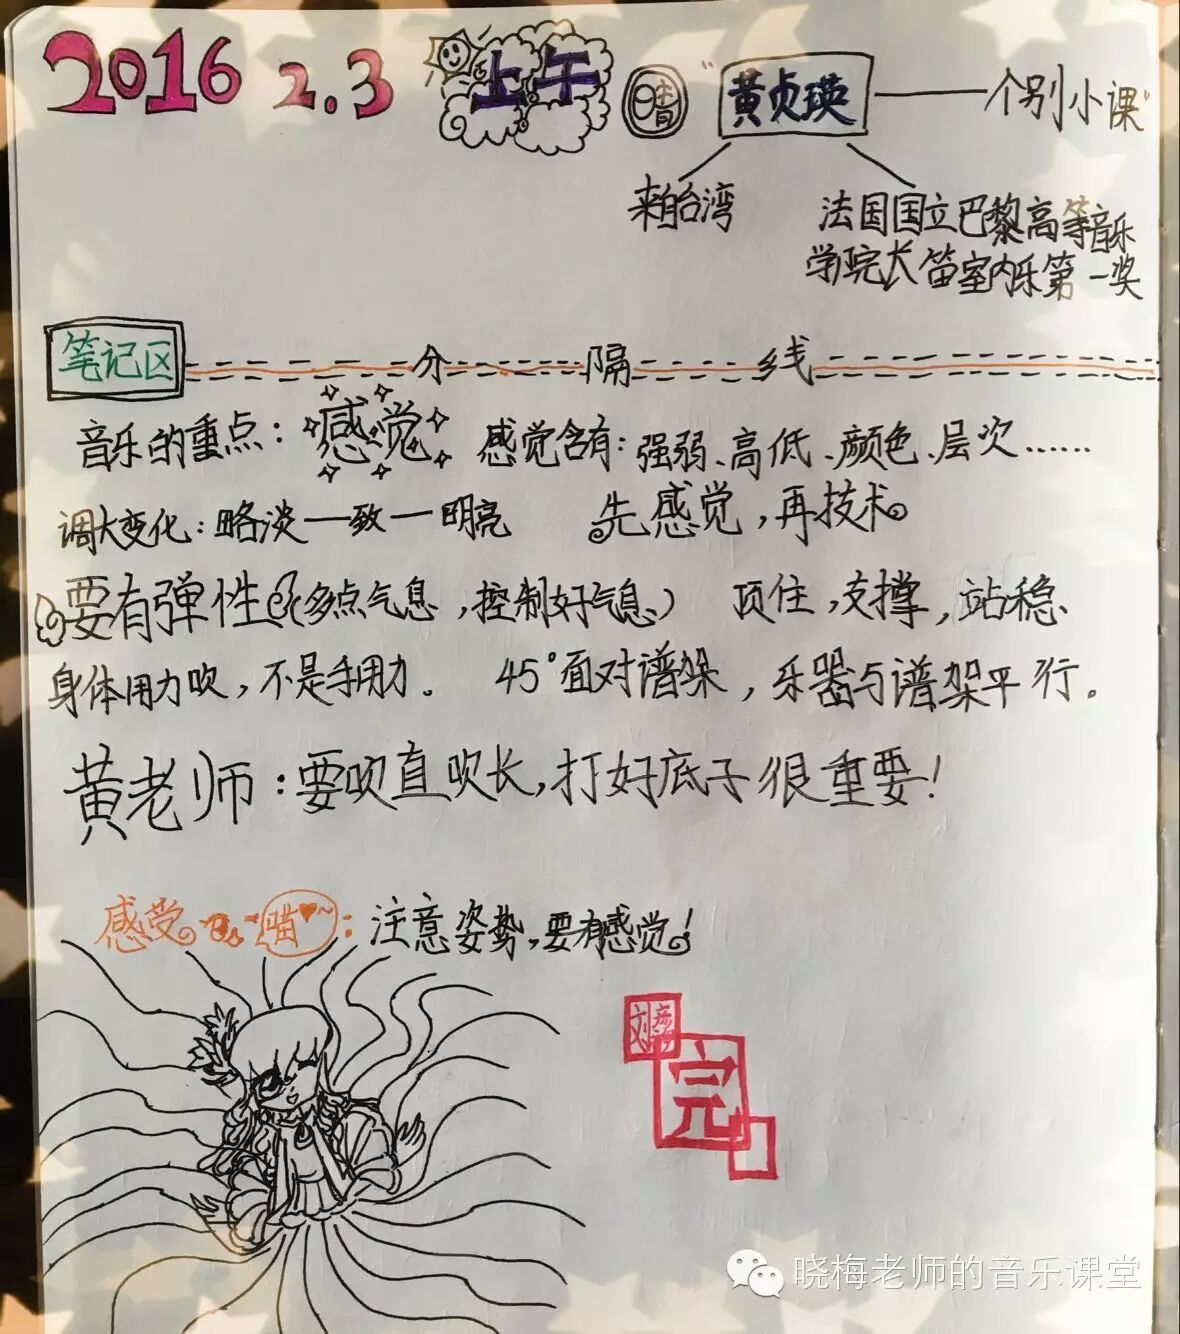 2016 2.3 上午 晴 "黄贞瑛——个别小课"
来自台湾
法国国立巴黎高等音乐
学院长笛室内乐第一奖
笔记区 分隔线
音乐的重点：感觉 感觉含有：强弱、高低、颜色、层次……
调大变化：略淡—致—明亮 先感觉，再技术。
要有弹性(多点气息，控制好气息) 顶住，支撑，站稳、
身体用力吹，不是手用力。 45°面对谱架，乐器与谱架平行。
黄老师：要吹直吹长，打好底子很重要！
感受 喵♥~：注意姿势，要有感觉！
完
晓梅老师的音乐课堂